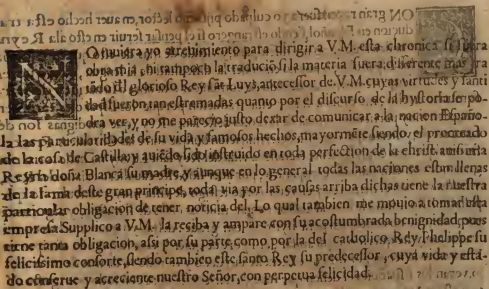 NO tuuiera yo atreuimiento para dirigir a V.M. esta chronica si fuera
obra mia, ni tampoco la tradució si la materia fuera differente mas
sido el glorioso Rey sãt Luys, antecessor de. V.M. cuyas virtudes y santi
dad fueron tan estremadas quanto por el discurso de la hystoria se po-
dra ver, y no me parecio justo dexar de comunicar a la nacion Españo-
la las particularidades de su vida y famosos hechos, mayorméte siendo, el procreado
de la casa de Castilla y auiedo sido instruido en toda perfection de la christ
Reyna doña Blanca su madre, y aunque en lo general todas las naciones estan llenas
de la fama deste gran principe, toda via por las causas arriba dichas tiene la nuestra
particular obligacion de tener, noticia del. Lo qual tambien me mouio a tomar esta
empresa Supplico a V.M. la reciba y ampare con su acostumbrada benignidad pues
tiene tanta obligacion, asi por su parte como por la del catholico, Rey Phelippe su
felicissimo consorte, siendo tambien este santo Rey su predecessor, cuya vida y esta-
do conserue y acreciente nuestro Señor, con perpetua felicidad.